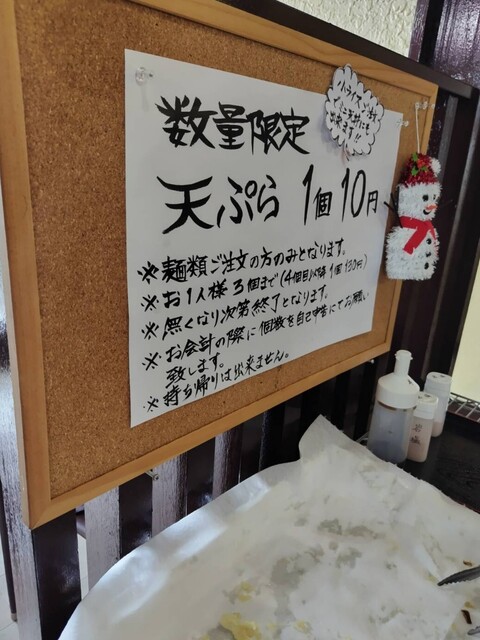 数量限定
天ぷら 1個10円
※麺類ご注文の方のみとなります。
※お1人様3個まで(4個目以降1個130円)
※無くなり次第終了となります。
※お会計の際に個数を自己申告にてお願い
致します。
※持ち帰りは出来ません。
小ライスご注文
出来ます!!
岩塩